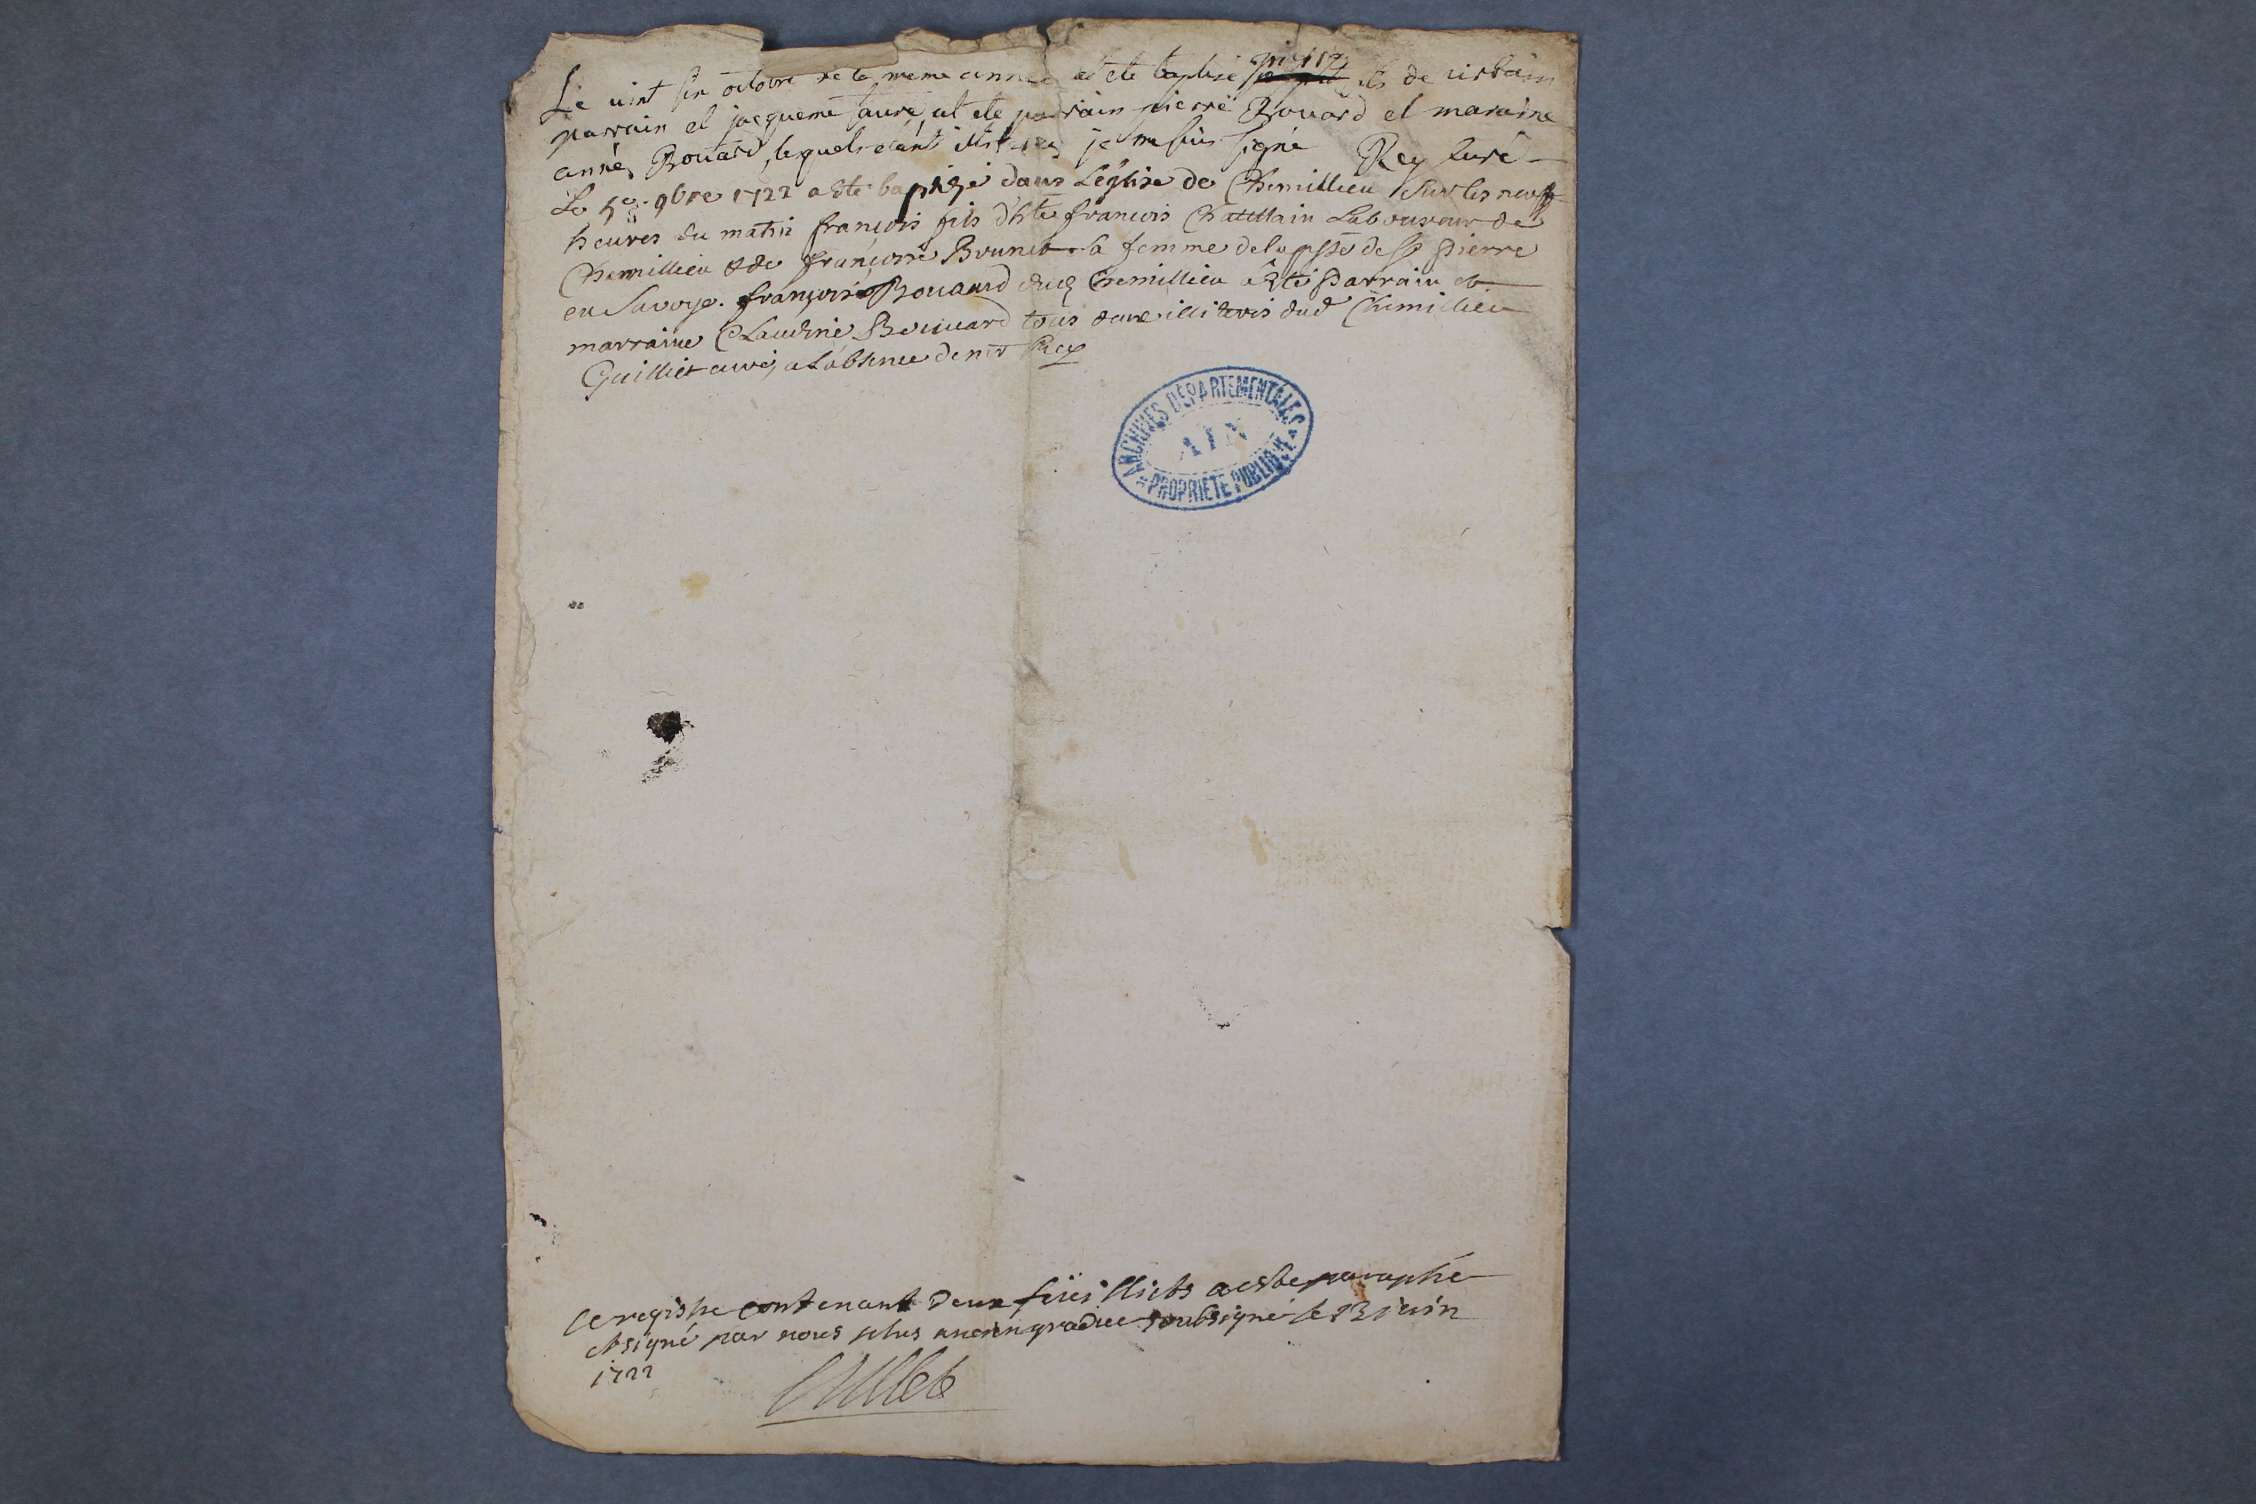 Le vint six octobre de la meme année at ete baptisé pierre fils de urbain
parrain et jaqueme faure, at ete parrain pierre Bouard et maraine
anne Bouard, lesquels etant illiteres je me suis signé Rey curé
Le 5e 9bre 1722 a été baptisé dans Leglise de Chemillieu sur les neuff
heures du matin françois fils d'hte françois Chatellain Laboureur de
Chemillieu & de françoise Brunet sa femme de la psse de St pierre
en Savoye. françois Bouaard dud Chemillieu a été Parrain et
marraine Claudine Bouuard tous deux illiterés dud Chemillieu
Guilliet curé, a L'absence de mr Rey
ARCHIVES DÉPARTEMENTALES
AIN
PROPRIÉTÉ PUBLIQUE
Ce registre contenant deux feüilliets a esté paraphé
et signé par nous plus ancien gradué soubsigné le 23 juin
1722